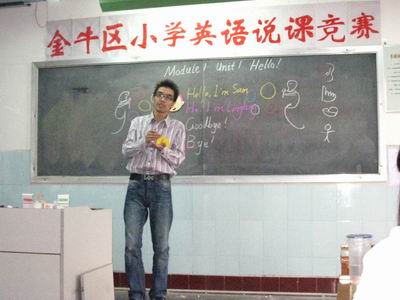 金牛区小学英语说课竞赛
Module 1 Unit 1 Hello!
Hello, I'm Sam
Hi, I'm Lingling
Goodbye!
Bye!